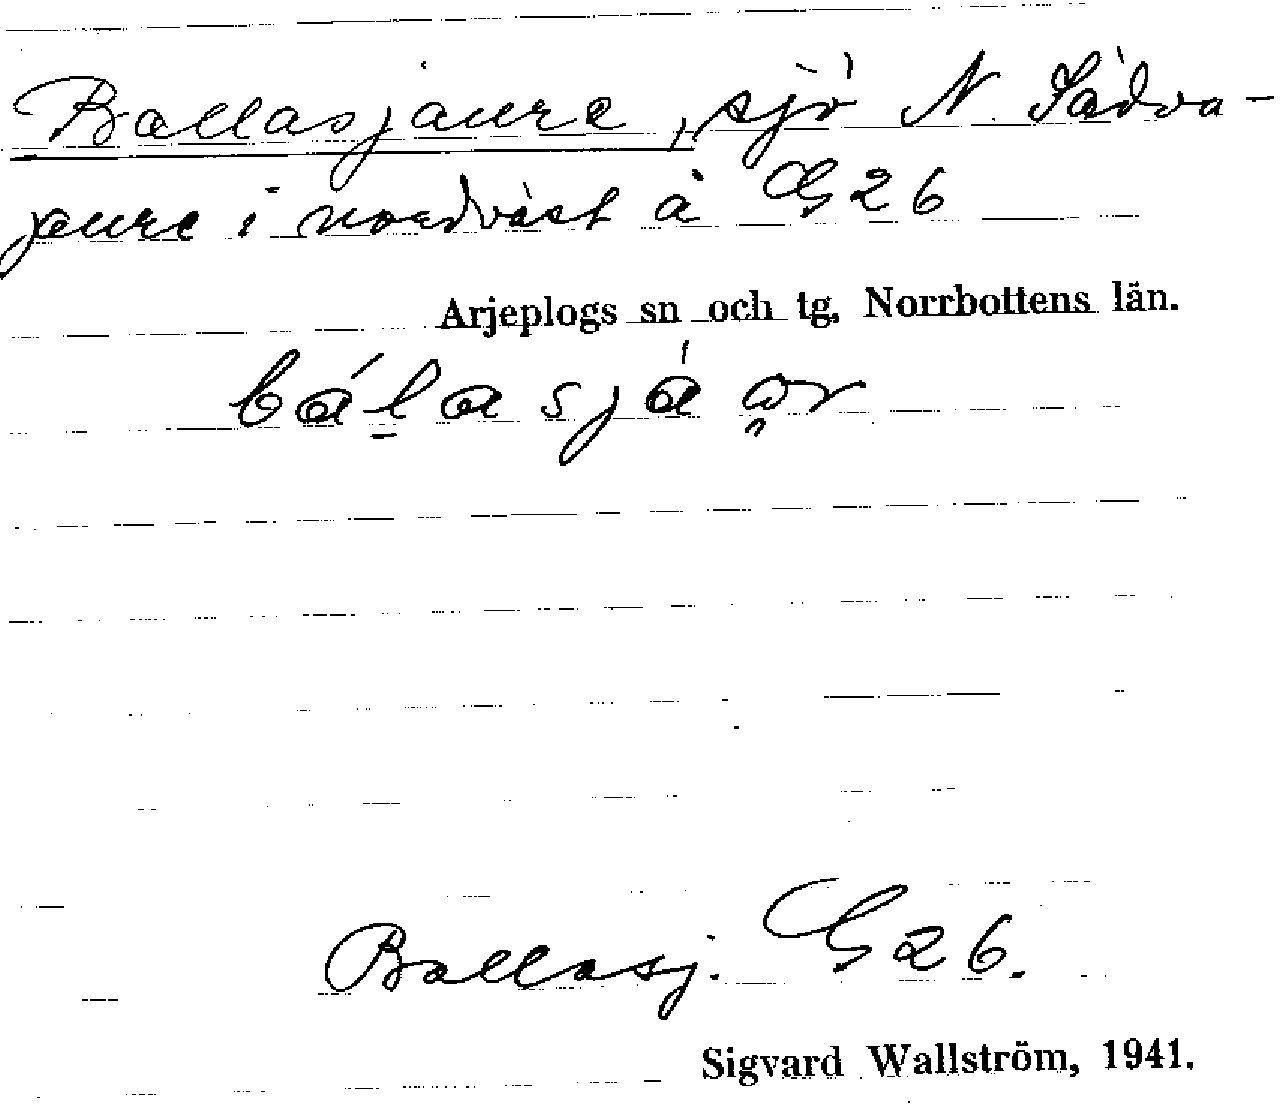 Ballasjaure, sjö N Sädva-
jaure i nordväst å G 26
Arjeplogs sn och tg, Norrbottens län.
bála̱sjá a̯r
Ballasj. G 26.
Sigvard Wallström, 1941.